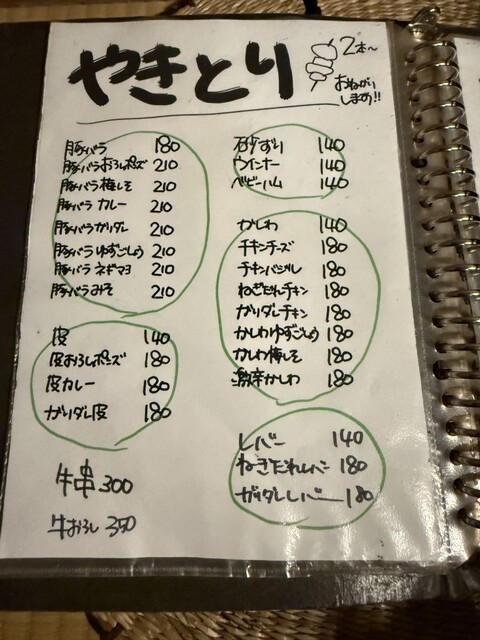 やきとり
2本〜
おねがい
します!!
豚バラ 180
豚バラおろしポンズ 210
豚バラ梅しそ 210
豚バラ カレー 210
豚バラガリダレ 210
豚バラゆずごしょう 210
豚バラ ネギマヨ 210
豚バラみそ 210
皮 140
皮おろしポンズ 180
皮カレー 180
ガリダレ皮 180
牛串 300
牛おろし 350
砂ずり 140
ウインナー 140
ベビーハム 140
かしわ 140
チキンチーズ 180
チキンバジル 180
ねぎだれチキン 180
ガリダレチキン 180
かしわゆずごしょう 180
かしわ梅しそ 180
激辛かしわ 180
レバー 140
ねぎだれレバー 180
ガリダレレバー 180